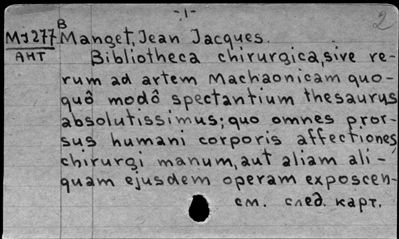 -1-
2
B
MJ277 Manget, Jean Jacques.
АНТ Bibliotheca chirurgica, sive re-
rum ad artem Machaonicam quo-
quô modô spectantium thesaurus
absolutissimus; quo omnes pror-
sus humani corporis affectiones
chirurgi manum, aut aliam ali-
quam ejusdem operam exposcen-
см. след. карт.